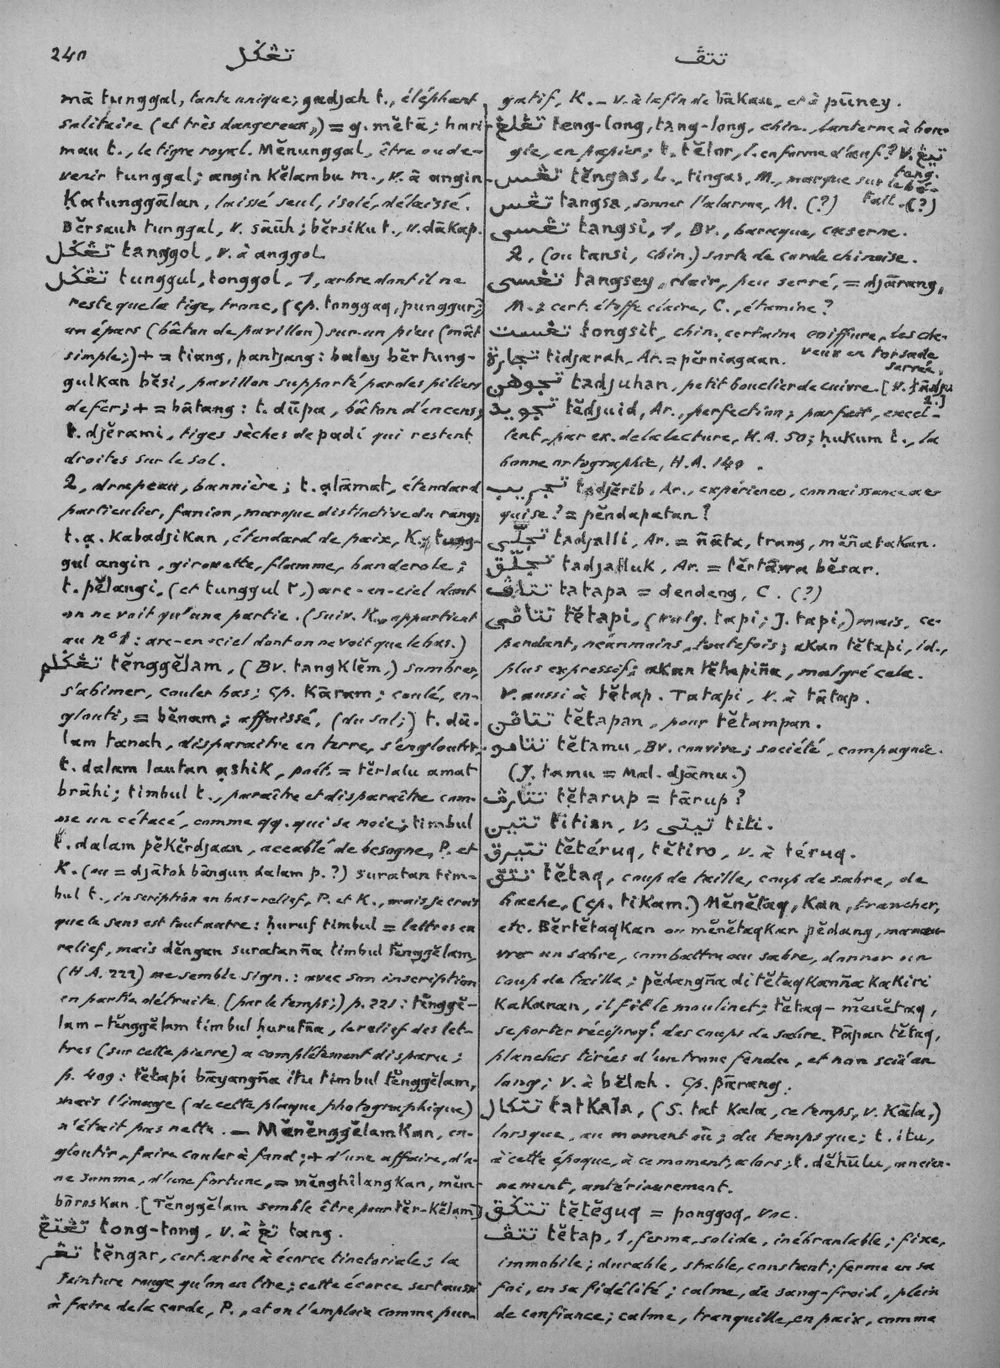 240
تڠݢل
تتڤ
mā tunggal, tante unique; gadjah t., éléphant
solitaire (et très dangereux,) = g. mĕtā; hari-
mau t., le tigre royal. Mĕnunggal, être ou de-
venir tunggal; angin kĕlambu m., v. à angin.
Katunggālan, laissé seul, isolé, délaissé.
Bĕrsauh tunggal, v. sāūh; bĕrsiku t., v. dākap.
تڠݢل tanggol, v. à anggol.
تڠݢل tunggul, tonggol, 1, arbre dont il ne
reste que la tige, tronc, (cp. tonggaq, punggur;)
un épars (bâton de pavillon) sur un pieu (mât
simple;) + = tiang, pantjang: balay bĕrtung-
gulkan bĕsi, pavillon supporté par des piliers
de fer; + = bātang: t. dūpa, bâton d'encens;
t. djĕrami, tiges sèches de padi qui restent
droites sur le sol.
2, drapeau, bannière; t. alāmat, étendard
particulier, fanion, marque distinctive du rang;
t. a. kabadjikan, étendard de paix, K.; tung-
gul angin, girouette, flamme, banderole;
t. pĕlangi, (et tunggul t.,) arc-en-ciel dont
on ne voit qu'une partie. (suiv. K. appartient
au n° 1: arc-en-ciel dont on ne voit que le bas.)
تڠݢلم tĕnggĕlam, (Bv. tangklĕm,) sombrer,
s'abimer, couler bas; cp. kāram; coulé, en-
glouti, = bĕnam; affaissé, (du sol;) t. dā-
lam tanah, disparaître en terre, s'engloutir;
t. dalam lautan ashik, poét. = tĕrlalu amat
brāhi; timbul t., paraître et disparaître com-
me un cétacé, comme qq. qui se noie; timbul
t. dalam pĕkĕrdjaan, accablé de besogne, P. et
K. (ou = djātoh bāngun dalam p. ?) suratan tim-
bul t., inscription en bas-relief, P. et K., mais je crois
que le sens est tout autre: huruf timbul = lettres en
relief, mais dĕngan suratanña timbul tĕnggĕlam,
(H.A. 222) me semble sign.: avec son inscription
en partie détruite (par le temps;) p. 221: tĕnggĕ-
lam-tĕnggĕlam timbul hurufña, le relief des let-
tres (sur cette pierre) a complétement disparu;
p. 409: tĕtapi bāyangña itu timbul tĕnggĕlam,
mais l'image (de cette plaque photographique)
n'était pas nette. — Mĕnĕnggĕlamkan, en-
gloutir, faire couler à fond; + d'une affaire, d'u-
ne somme, d'une fortune, = mĕnghilangkan, mĕm-
bōroskan. [Tĕnggĕlam semble être pour tĕr-kĕlam]
تڠتڠ tong-tong, v. à تڠ tang.
تڠر tĕngar, cert. arbre à écorce tinctoriale; la
teinture rouge qu'on en tire; cette écorce sert aussi
à faire de la corde, P., et on l'emploie comme pur-
gatif, K. — v. à la fin de bākau, et à pūney.
تڠلڠ teng-long, tang-long, chin., lanterne à bou-
gie, en papier; t. tĕlor, l. en forme d'œuf? v. تيڠ tang.
تڠس tĕngas, L., tingas, M., marque sur le bé-
tail. (?)
تڠس tangsa, sonner l'alarme, M. (?)
تڠسى tangsi, 1, Bv., baraque, caserne.
2, (ou tansi, chin.) sorte de corde chinoise.
تڠسى tangsey, clair, peu serré, = djārang,
M.; cert. étoffe claire, C., étamine?
تڠست tongsit, chin., certaine coiffure, les che-
veux en torsade serrée.
تجارة tidjarah, Ar. = pĕrniagaan.
تجوهن tadjuhan, petit bouclier de cuivre. [v. tādju 2.]
تجويد tĕdjuid, Ar., perfection; parfait, excel-
lent, par ex. de la lecture, H.A. 50; hukum t., la
bonne ortographie, H.A. 140.
تجريب tadjĕrib, Ar., expérience, connaissance a c-
quise? = pĕndapatan?
تجلّي tadjalli, Ar. = ñāta, trang, mĕñatakan.
تجلّق tadjalluk, Ar. = tĕrtāwa bĕsar.
تتاڤ tatapa = dendeng, C. (?)
تتاڤي tĕtapi, (vulg. tapi; J. tapi,) mais, ce-
pendant, néanmoins, toutefois; akan tĕtapi, id.,
plus expressif; akan tĕtapiña, malgré cela.
V. aussi à tĕtap. Tatapi, v. à tātap.
تتاڤن tĕtapan, pour tĕtampan.
تتامو tĕtamu, Bv. convive; société, compagnie.
(J. tamu = Mal. djāmu.)
تتارڤ tĕtarup = tārup?
تتين titian, v. تيتى titi.
تتيرق tĕtéruq, tĕtiro, v. à téruq.
تتق tĕtaq, coup de taille, coup de sabre, de
hache, (cp. tikam.) Mĕnĕtaq, kan, trancher,
etc. Bĕrtĕtaqkan ou mĕnĕtaqkan pĕdang, manœu-
vrer un sabre, combattre au sabre, donner un
coup de taille; pĕdangña di tĕtaqkanña kakiri
kakanan, il fit le moulinet; tĕtaq-mĕnĕtaq,
se porter réciproq! des coups de sabre. Pāpan tĕtaq,
planches tirées d'un tronc fendu, et non scié en
long; v. à bĕlah. Cp. pārang.
تتكال tatkala, (S. tat kala, ce temps, v. kāla,)
lorsque, au moment où; du temps que; t. itu,
à cette époque, à ce moment, alors; t. dĕhūlu, ancien-
nement, antérieurement.
تتݢق tĕtĕguq = ponggoq, voc.
تتڤ tĕtap, 1, ferme, solide, inébranlable; fixe,
immobile; durable, stable, constant; ferme en sa
foi, en sa fidélité; calme, de sang-froid, plein
de confiance; calme, tranquille, en paix, comme